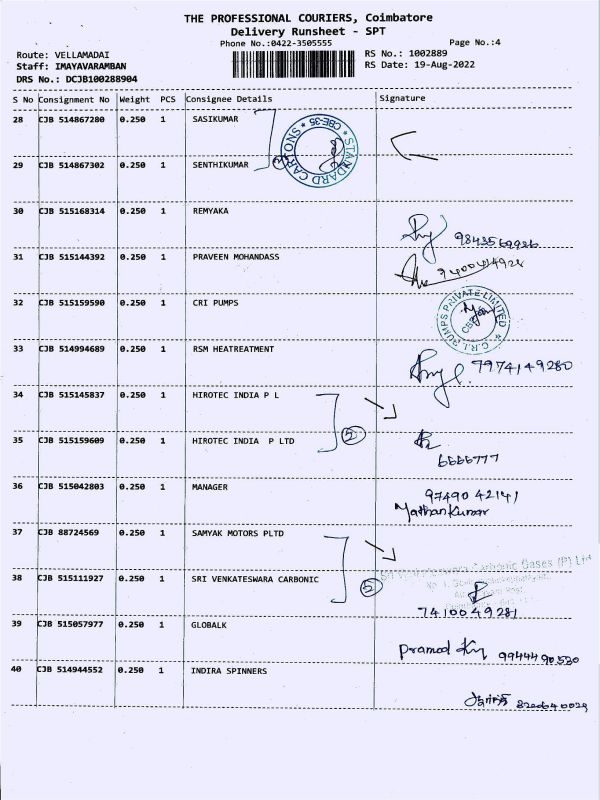 THE PROFESSIONAL COURIERS, Coimbatore
Delivery Runsheet - SPT
Phone No.:0422-3505555 Page No.:4
Route: VELLAMADAI RS No.: 1002889
Staff: IMAYAVARAMBAN RS Date: 19-Aug-2022
DRS No.: DCJB100288904
S No Consignment No Weight PCS Consignee Details Signature
28 CJB 514867280 0.250 1 SASIKUMAR
STANDARD CARBONS CBE-35
29 CJB 514867302 0.250 1 SENTHIKUMAR
30 CJB 515168314 0.250 1 REMYAKA
31 CJB 515144392 0.250 1 PRAVEEN MOHANDASS
32 CJB 515159590 0.250 1 CRI PUMPS
C.R.I. PUMPS PRIVATE LIMITED
33 CJB 514994689 0.250 1 RSM HEATREATMENT
7974149280
34 CJB 515145837 0.250 1 HIROTEC INDIA P L
35 CJB 515159609 0.250 1 HIROTEC INDIA P LTD
6666777
36 CJB 515042803 0.250 1 MANAGER
97490 42141
Mathan Kumar
37 CJB 88724569 0.250 1 SAMYAK MOTORS PLTD
38 CJB 515111927 0.250 1 SRI VENKATESWARA CARBONIC
Carbonic Gases (P) Ltd
7410049281
39 CJB 515057977 0.250 1 GLOBALK
Pramod 9944490530
40 CJB 514944552 0.250 1 INDIRA SPINNERS